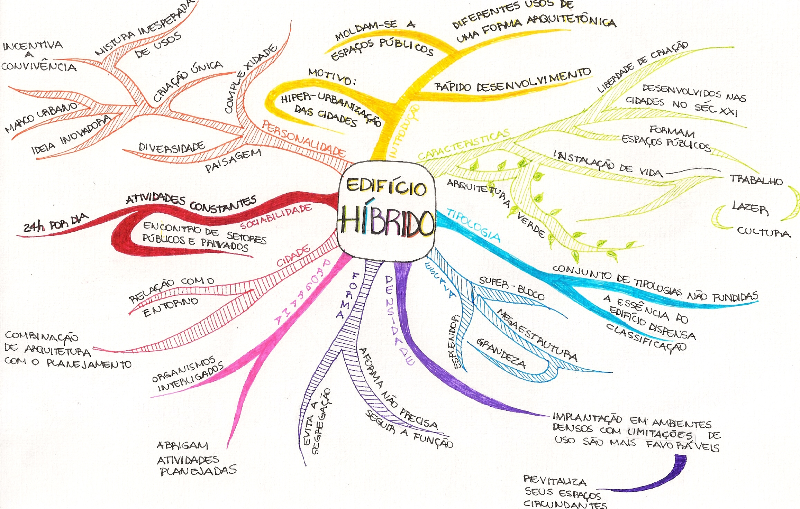 EDIFÍCIO
HÍBRIDO
INTRODUÇÃO
MOLDAM-SE A
ESPAÇOS PÚBLICOS
DIFERENTES USOS DE
UMA FORMA ARQUITETÔNICA
RÁPIDO DESENVOLVIMENTO
MOTIVO:
HIPER-URBANIZAÇÃO
DAS CIDADES
CARACTERÍSTICAS
LIBERDADE DE CRIAÇÃO
DESENVOLVIDOS NAS
CIDADES NO SÉC XXI
FORMAM
ESPAÇOS PÚBLICOS
INSTALAÇÃO DE VIDA
TRABALHO
LAZER
CULTURA
ARQUITETURA VERDE
TIPOLOGIA
CONJUNTO DE TIPOLOGIAS NÃO FUNDIDAS
A ESSÊNCIA DO
EDIFÍCIO DISPENSA
CLASSIFICAÇÃO
SUPER-BLOCO
MEGAESTRUTURA
GRANDEZA
ESPLENDOR
DENSIDADE
IMPLANTAÇÃO EM AMBIENTES
DENSOS COM LIMITAÇÕES DE
USO SÃO MAIS FAVORÁVEIS
REVITALIZA
SEUS ESPAÇOS
CIRCUNDANTES
FORMA
A FORMA NÃO PRECISA
SEGUIR A FUNÇÃO
EVITA A
SEGREGAÇÃO
PROGRAMA
ORGANISMOS
INTERLIGADOS
ABRIGAM
ATIVIDADES
PLANEJADAS
CIDADE
RELAÇÃO COM O
ENTORNO
COMBINAÇÃO
DE ARQUITETURA
COM O PLANEJAMENTO
SOCIABILIDADE
ATIVIDADES CONSTANTES
24h POR DIA
ENCONTRO DE SETORES
PÚBLICOS E PRIVADOS
PERSONALIDADE
COMPLEXIDADE
CRIAÇÃO ÚNICA
MISTURA INESPERADA
DE USOS
INCENTIVA
A
CONVIVÊNCIA
MARCO URBANO
IDEIA INOVADORA
DIVERSIDADE
PAISAGEM